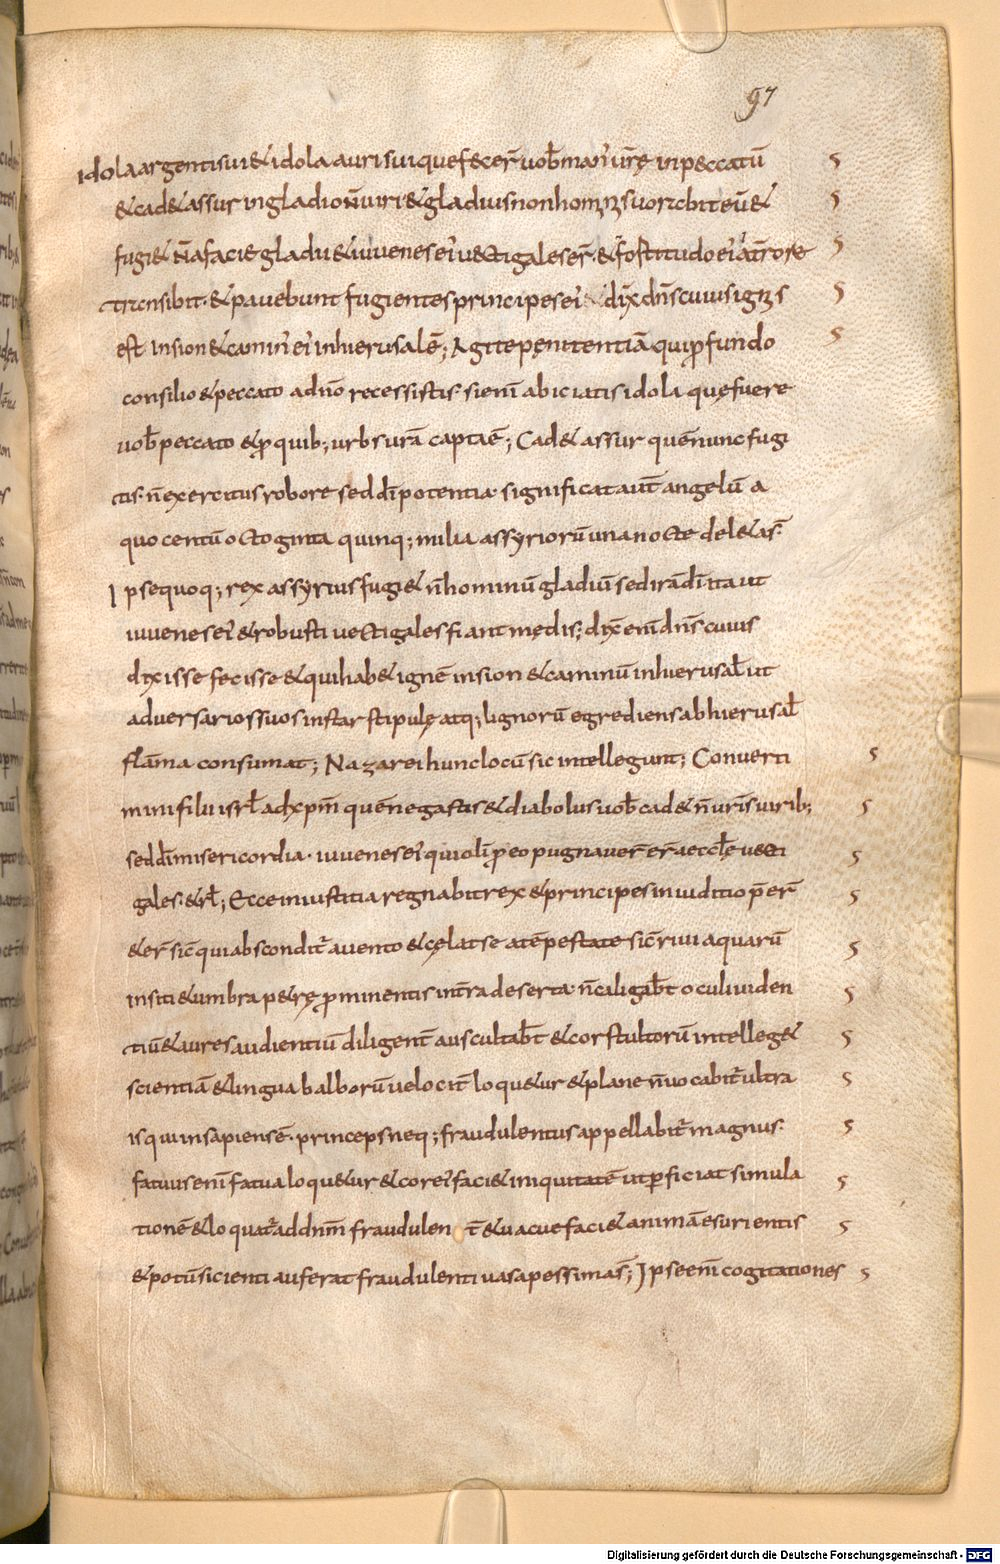 97
idola argenti sui & idola auri sui que fecer̄ uob̄ man' ur̄ę in peccatū
& cad& assur in gladio n̄ uiri & gladius non hominis uorabit eū &
fugi& n̄ a facie gladii & iuuenes ei' uectigales er̄. & fortitudo ei' a t̄rore
transibit. & pauebunt fugientes principes ei' dix̄ dn̄s cuius ignis
est in sion & camin' ei' in hierusalē; Agite pęnitentiā qui ꝓfundo
consilio & peccato ad n̄o recessistis. si eni' abiciatis idola quę fuere
uob̄ peccato & ꝓ quib; urbs ur̄a capta ē; Cad& assur quē nunc fugi
tis. n̄ exercitus robore sed dī potentia. significat aut̄ angelū a
quo centū octoginta quinq; milia assyriorū una nocte del& as̄
Ipse quoq; rex assyrius fugi& n̄ hominū gladiū sed irā dī ita ut
iuuenes ei' & robusti uectigales fiant medis; dix̄ eni' dn̄s cuius
dixisse fecisse & qui hab& ignē in sion & caminū in hierusal̄ ut
aduersarios suos instar stipulę atq; lignorū egrediens ab hierusal̄
flāma consumat; Nazarei hunc locū sic intellegunt; Conuerti
mini filii isrl̄ ad xp̄m quē negastis & diabolus uob̄ cad& n̄ ur̄is uirib;
sed dī misericordia. iuuenes ei' qui oli' ꝓ eo pugnauer̄ er̄ aecclę uecti
gales. & rl̄; Ecce in iustitia regnabit rex & principes in iuditio p̄er̄
& er̄ sic̄ qui abscondit' a uento & cęlat se a tēpestate sic̄ riui aquarū
in siti & umbra p&rę ꝓminentis in t̄ra deserta. n̄ caligab̄t oculi uiden
tiū & aures audientiū diligent̄ auscultab̄t & cor stultorū intelleg&
scientiā & lingua balborū uelocit̄ loqu&ur & plane n̄ uocabit' ultra
is qui insapiens ē. princeps neq; fraudulentus appellabit' magnus.
fatuus eni' fatua loqu&ur & cor ei' faci& iniquitatē ut ꝑficiat simula
tionē & loquat' ad dnm̄ fraudulent̄ & uacuefaci& animā esurientis
& potū sicienti auferat fraudulenti uasa pessima s̄; Ipse eni' cogitationes
Digitalisierung gefördert durch die Deutsche Forschungsgemeinschaft - DFG